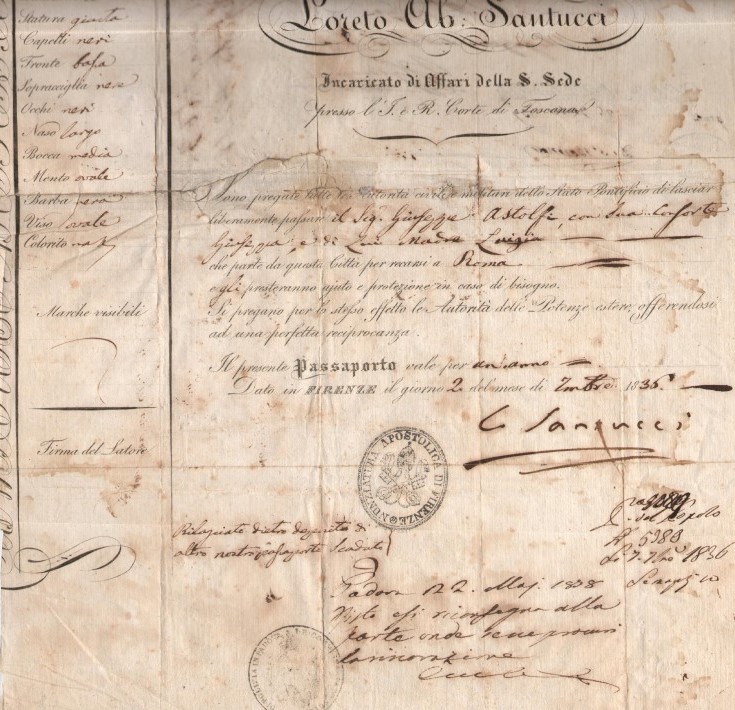 Loreto Ab: Santucci
Incaricato di Affari della S. Sede
presso l'I. e R. Corte di Toscana
Statura giusta
Capelli neri
Fronte bassa
Sopracciglia nere
Occhi neri
Naso largo
Bocca media
Mento ovale
Barba nera
Viso ovale
Colorito
Marche visibili
Firma del Latore
Sono pregate tutte le Autorità civili e militari dello Stato Pontificio di lasciar
liberamente passare il Sig. Giuseppe Astolfi, con sua Consorte
Giuseppa, e di Lui Madre Luigia
che parte da questa Città per recarsi a Roma
e gli presteranno ajuto e protezione in caso di bisogno.
Si pregano per lo stesso effetto le Autorità delle Potenze estere, offerendosi
ad una perfetta reciprocanza.
Il presente Passaporto vale per un anno
Dato in FIRENZE il giorno 2 del mese di 7mbre 1836.
Santucci
NUNZIATURA APOSTOLICA DI FIRENZE
Rilasciato dietro deposito di
altro nostro passaporto scaduto
del Popolo
5380
1836
Padova 2. Mag. 1838
Visto si riconsegna alla
parte onde se ne procuri
la rinovazione